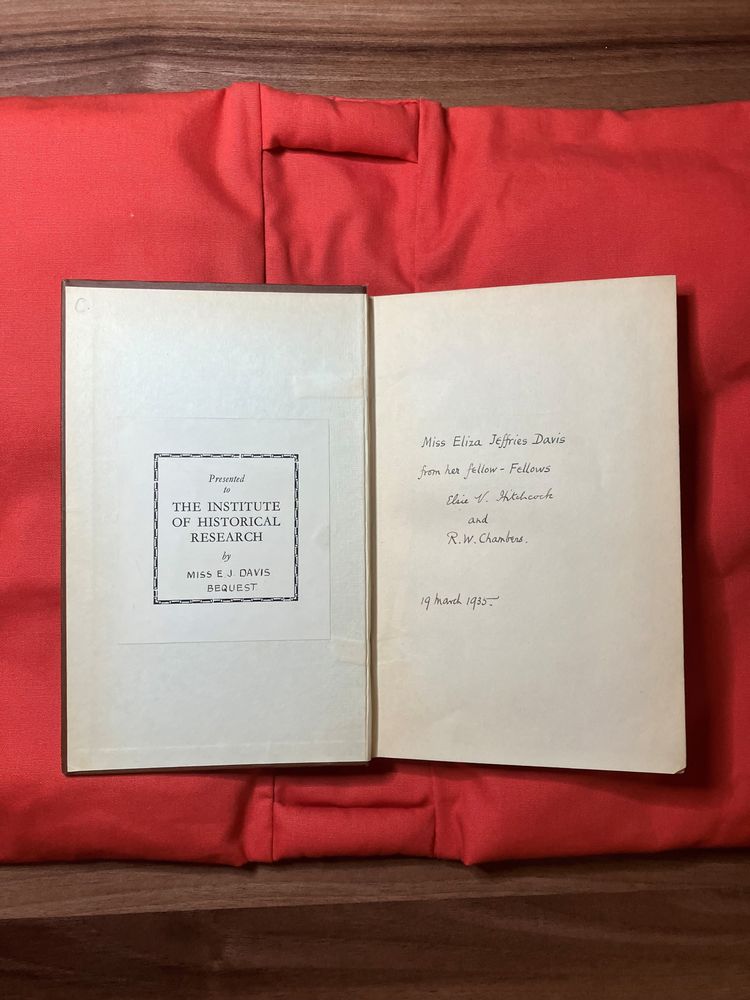 C.
Presented
to
THE INSTITUTE
OF HISTORICAL
RESEARCH
by
MISS E. J. DAVIS
BEQUEST
Miss Eliza Jeffries Davis
from her fellow-Fellows
Elsie V. Hitchcock
and
R.W. Chambers.
19 March 1935.